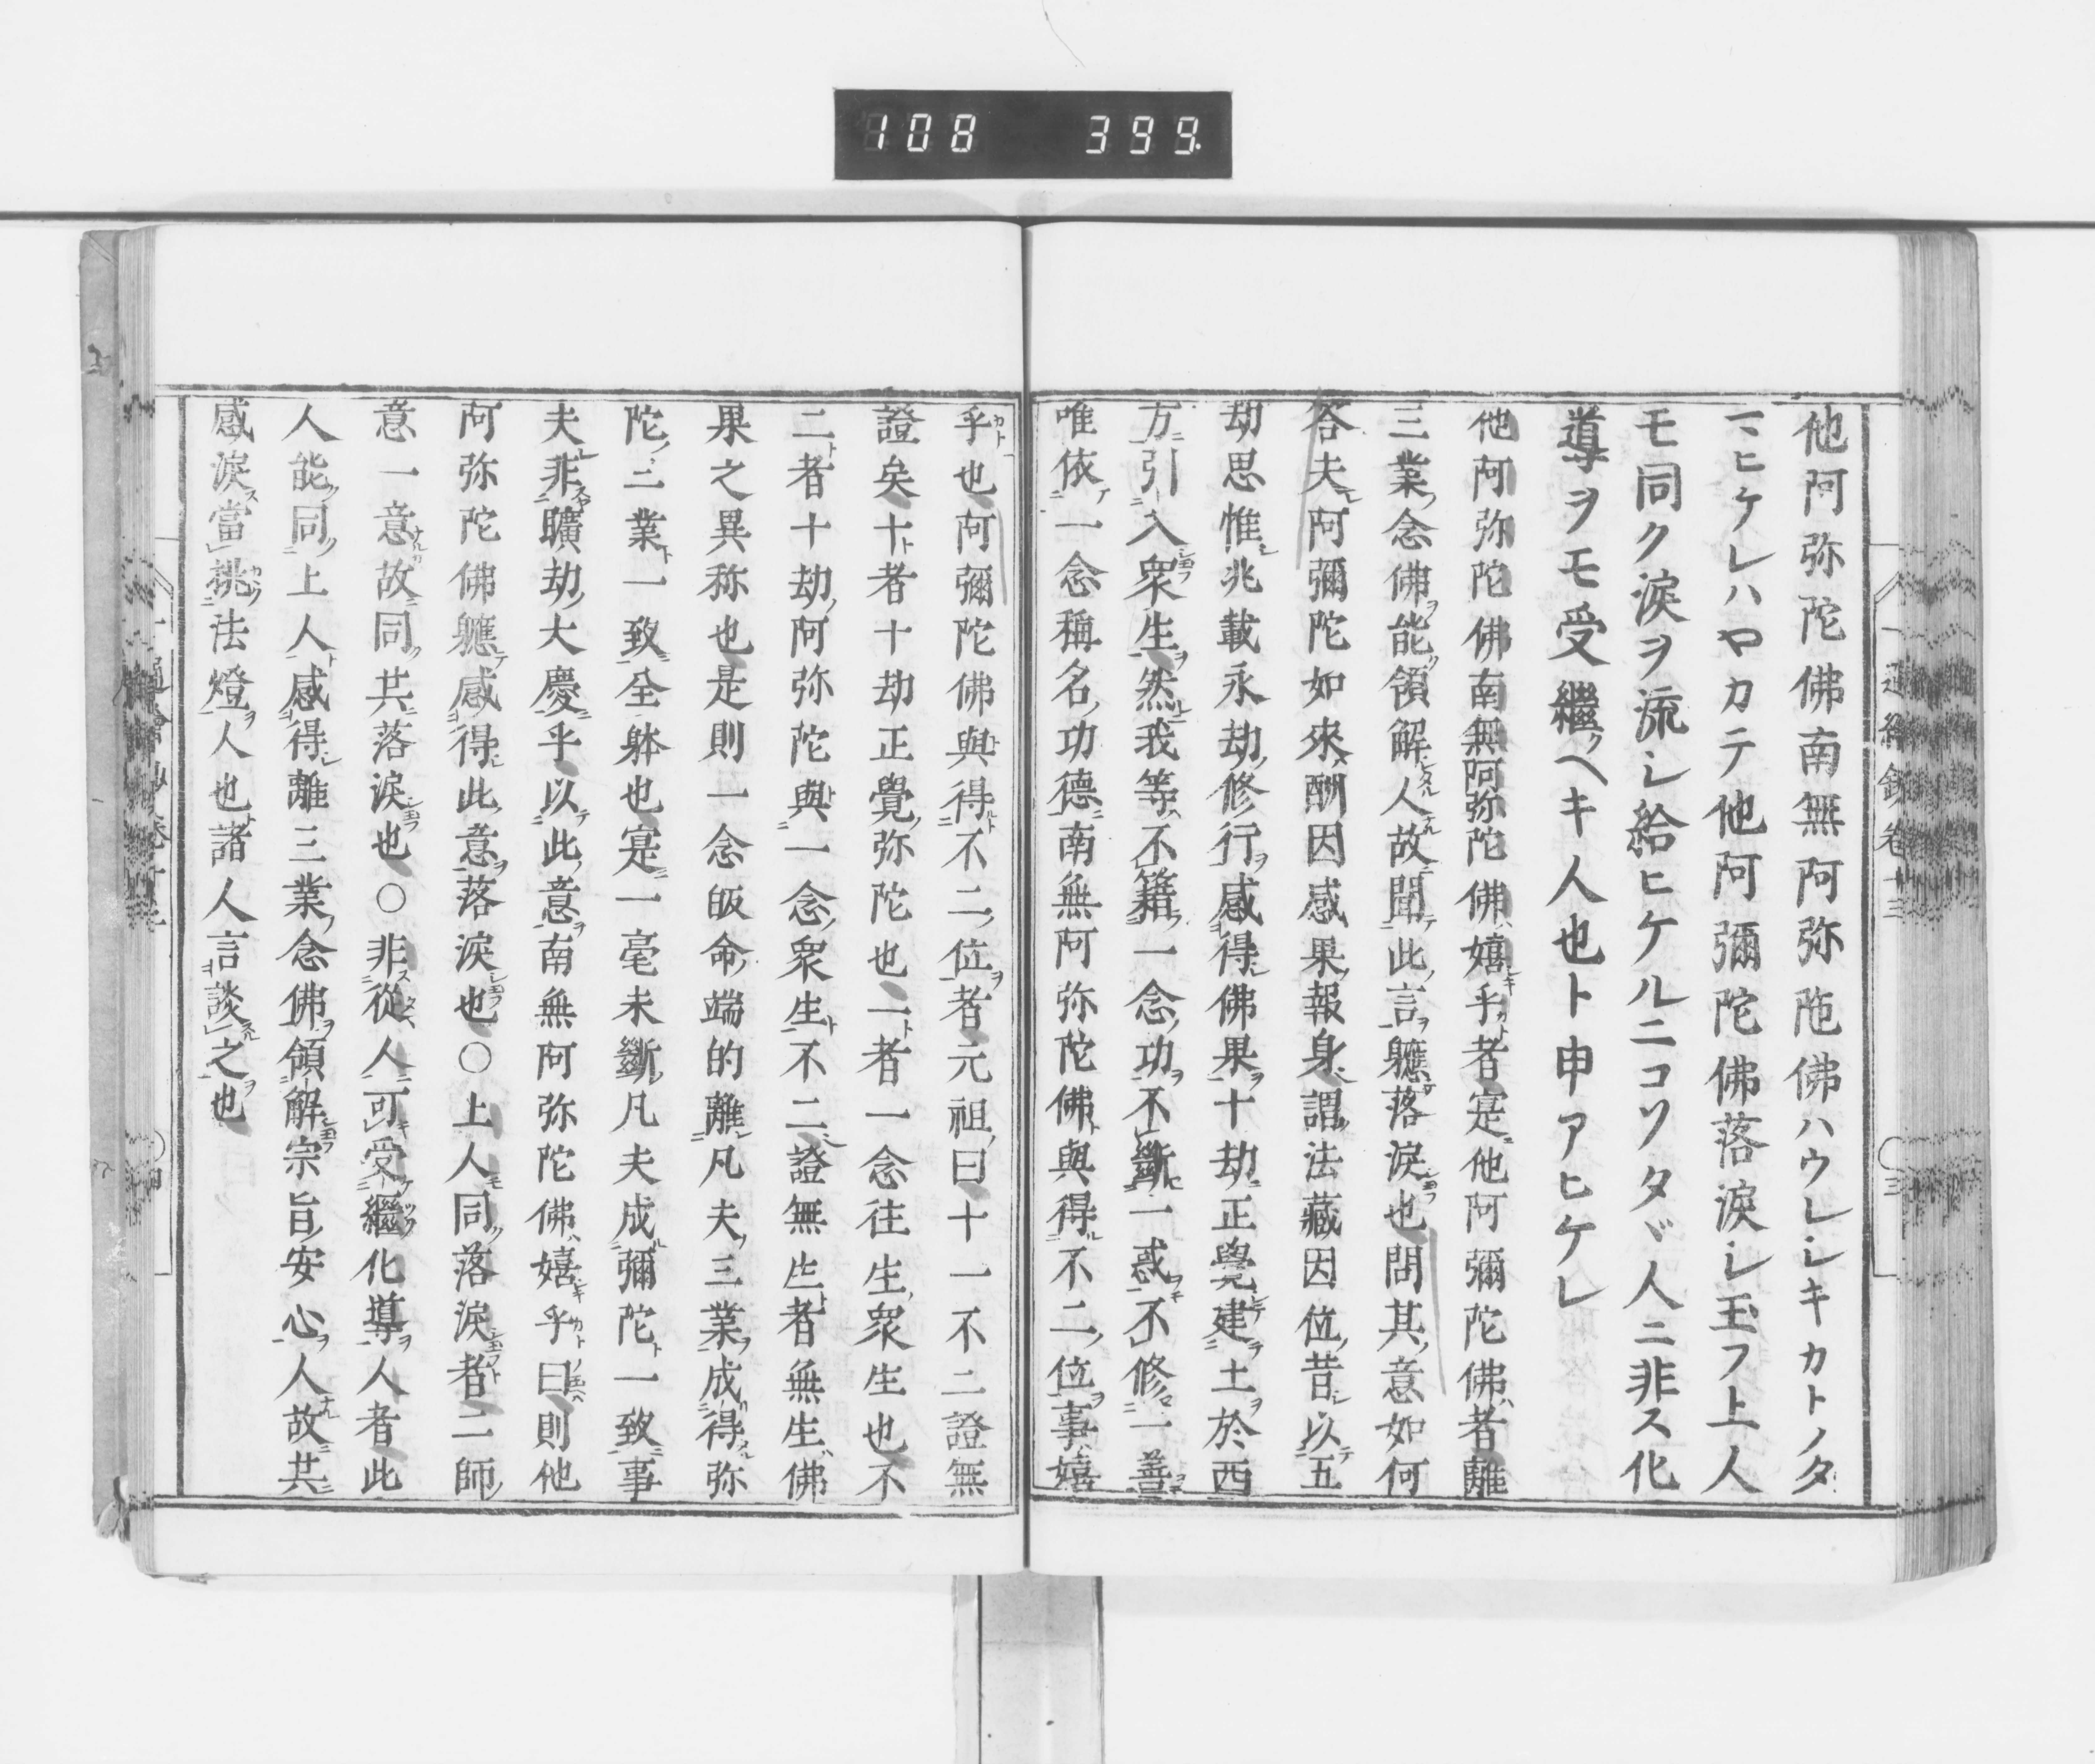 108 399
他阿弥陀佛南無阿弥陁佛ハウレシキカトノタ
マヒケレハヤカテ他阿彌陀佛落淚シ玉フ上人
モ同ク淚ヲ流シ給ヒケルニコソタヾ人ニ非ス化
導ヲモ受繼ヘキ人也ト申アヒケレ
他阿弥陀佛南無阿弥陀佛嬉乎者寔他阿彌陀佛者離
三業念佛能領解人故聞此言軈落淚也問其意如何
答夫阿彌陀如來酬因感果報身謂法藏因位昔以五
劫思惟兆載永劫修行感得佛果十劫正覺建土於西
方引入衆生然我等不籍一念功不斷一惑不修一善
唯依一念稱名功德南無阿弥陀佛與得不二位事嬉
乎也阿彌陀佛與得不二位者元祖曰十一不二證無
證矣十者十劫正覺弥陀也一者一念往生衆生也不
二者十劫阿弥陀與一念衆生不二證無生者無生佛
果之異称也是則一念皈命端的離凡夫三業成得弥
陀三業一致全躰也寔一毫未斷凡夫成彌陀一致事
夫非曠劫大慶乎以此意南無阿弥陀佛嬉乎曰則他
阿弥陀佛軈感得此意落淚也○上人同落淚者二師
意一意故同共落淚也○非從人可受繼化導人者此
人能同上人感得離三業念佛領解宗旨安心人故共
感淚當挑法燈人也諸人言談之也